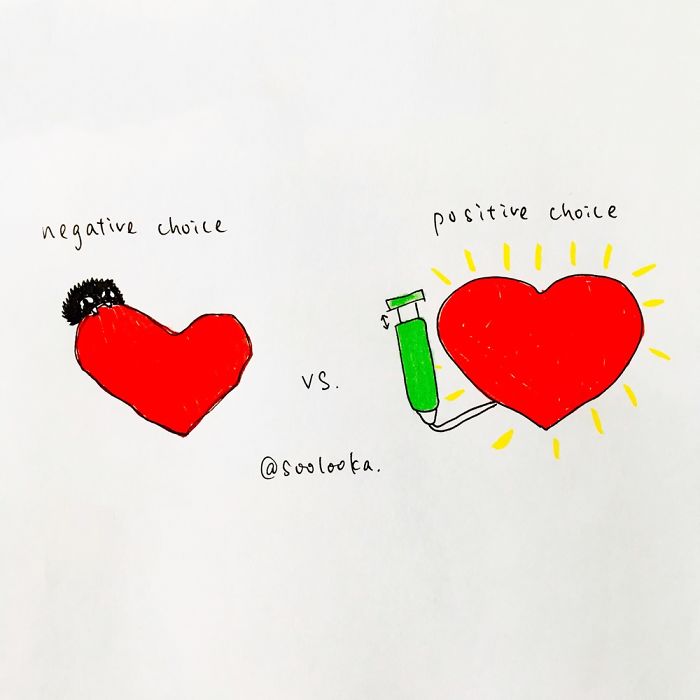 negative choice
positive choice
vs.
@soolooka.